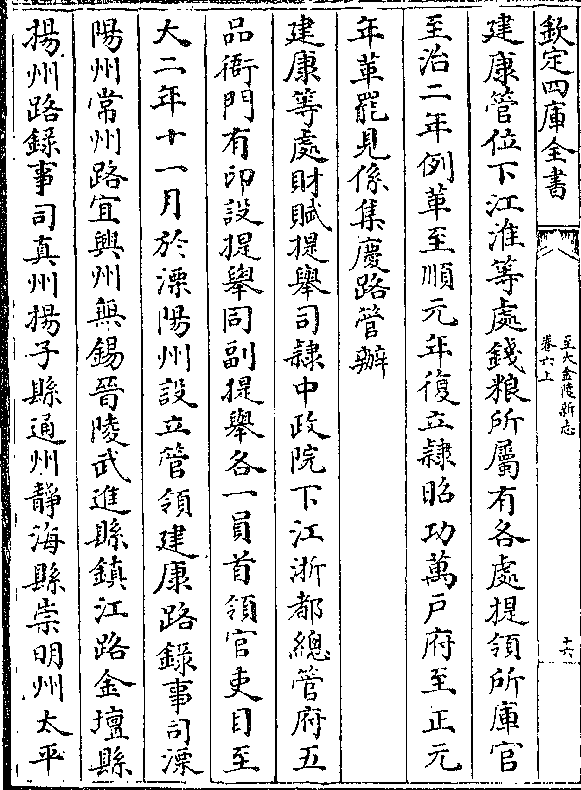 欽定四庫全書
至大金陵新志
卷六上
十六
建康管位下江淮等處錢粮所屬有各處提領所庫官
至治二年例革至順元年復立隷昭功萬戸府至正元
年革罷見係集慶路管辦
建康等處財賦提舉司隷中政院下江浙都總管府五
品衙門有印設提舉同副提舉各一員首領官吏目至
大二年十一月於溧陽州設立管領建康路錄事司溧
陽州常州路宜興州無錫晉陵武進縣鎮江路金壇縣
揚州路錄事司真州揚子縣通州靜海縣崇明州太平